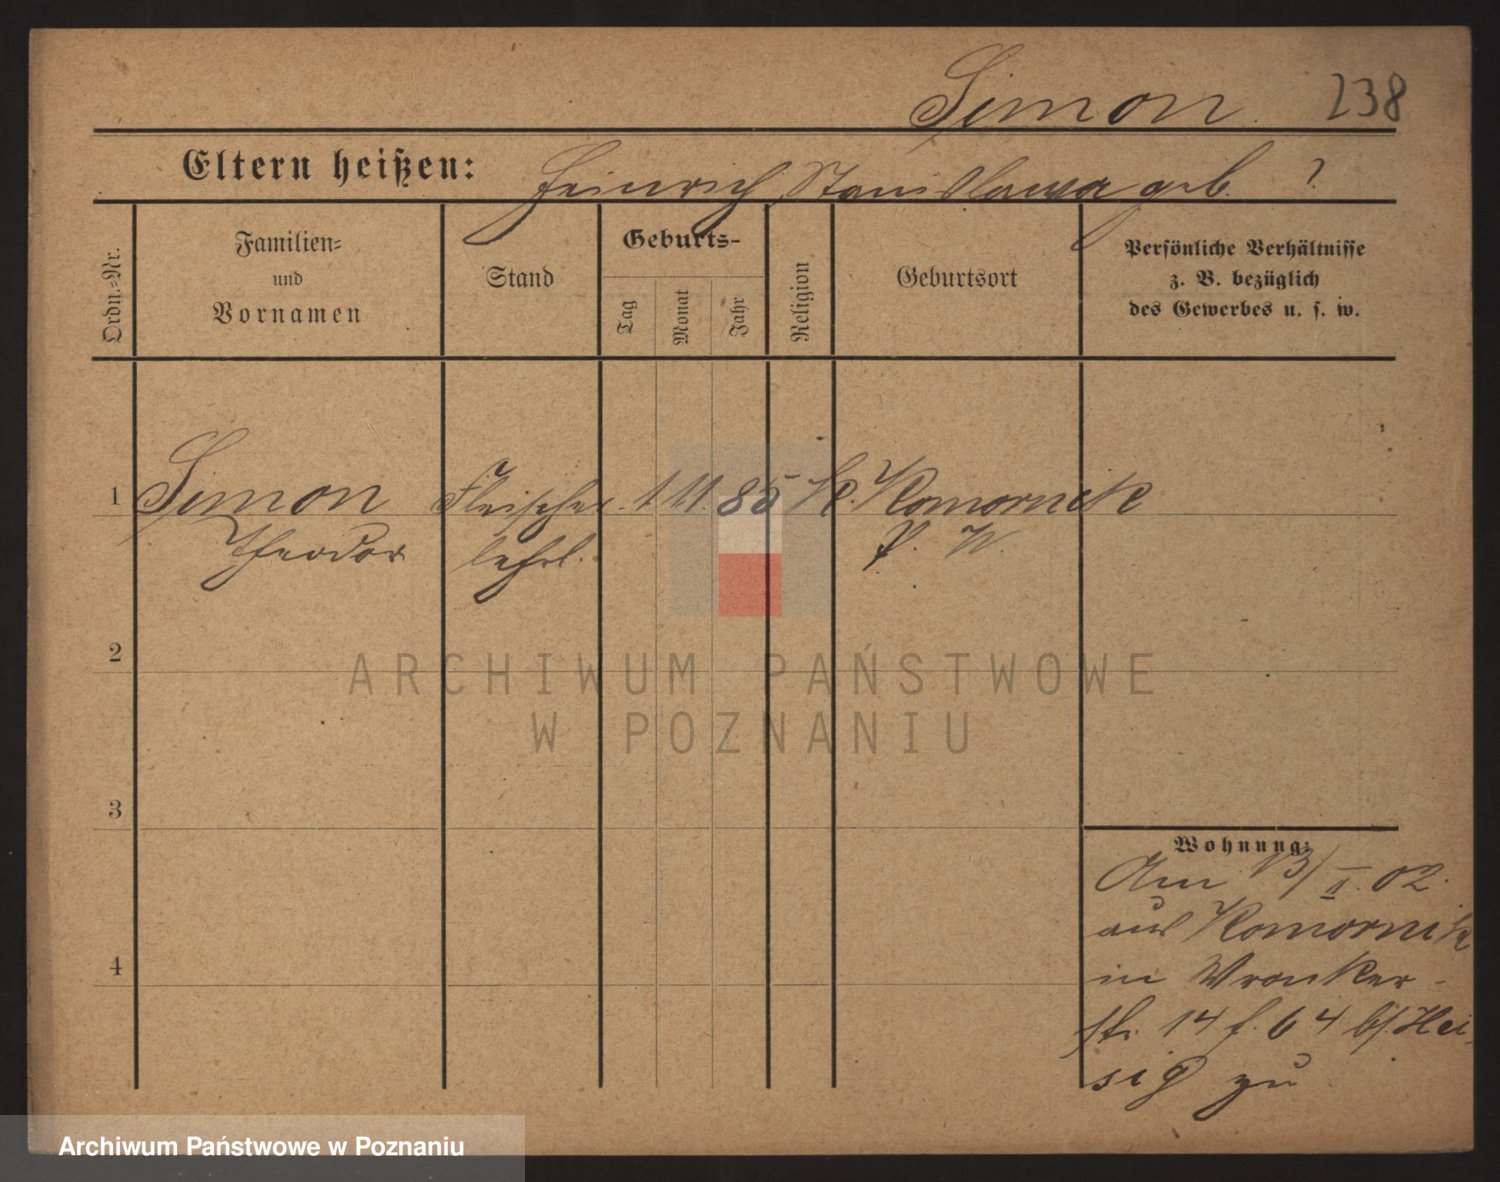 Simon 238
Eltern heißen: Heinrich, Stanislawa geb. ?
Ordn.-Nr.
Familien-
und
Vornamen
Stand
Geburts-
Tag
Monat
Jahr
Religion
Geburtsort
Persönliche Verhältnisse
z. B. bezüglich
des Gewerbes u. s. w.
1 Simon Fleischer 1. 11. 85 k. Komornik
Theodor lehrl. P. W.
2
3
4
Wohnung:
Am 13/II. 02.
aus Komornik
in Wronker-
str. 14 f. 64 b/. Hei-
sig zu
ARCHIWUM PAŃSTWOWE
W POZNANIU
Archiwum Państwowe w Poznaniu